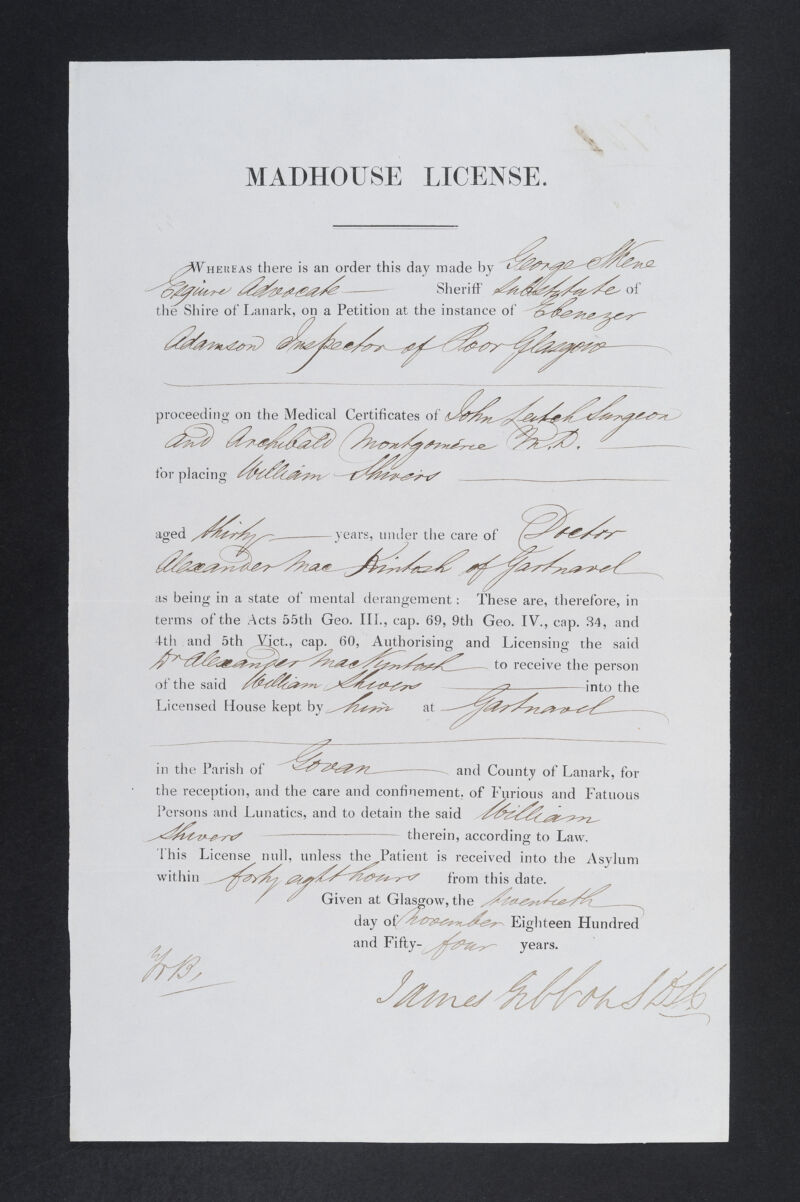 MADHOUSE LICENSE.
WHEREAS there is an order this day made by George Skene
Esquire Advocate Sheriff Substitute of
the Shire of Lanark, on a Petition at the instance of Ebenezer
Adamson Inspector of Poor Glasgow
proceeding on the Medical Certificates of John Leitch Surgeon
and Archibald Montgomerie M.D.
for placing William Shivers
aged thirty years, under the care of Doctor
Alexander Mac Kintosh of Gartnavel
as being in a state of mental derangement: These are, therefore, in
terms of the Acts 55th Geo. III., cap. 69, 9th Geo. IV., cap. 34, and
4th and 5th Vict., cap. 60, Authorising and Licensing the said
Dr Alexander MacKintosh to receive the person
of the said William Shivers into the
Licensed House kept by him at Gartnavel
in the Parish of Govan and County of Lanark, for
the reception, and the care and confinement, of Furious and Fatuous
Persons and Lunatics, and to detain the said William
Shivers therein, according to Law.
This License null, unless the Patient is received into the Asylum
within forty eight hours from this date.
Given at Glasgow, the twentieth
day of November Eighteen Hundred
and Fifty-four years.
James Gibson